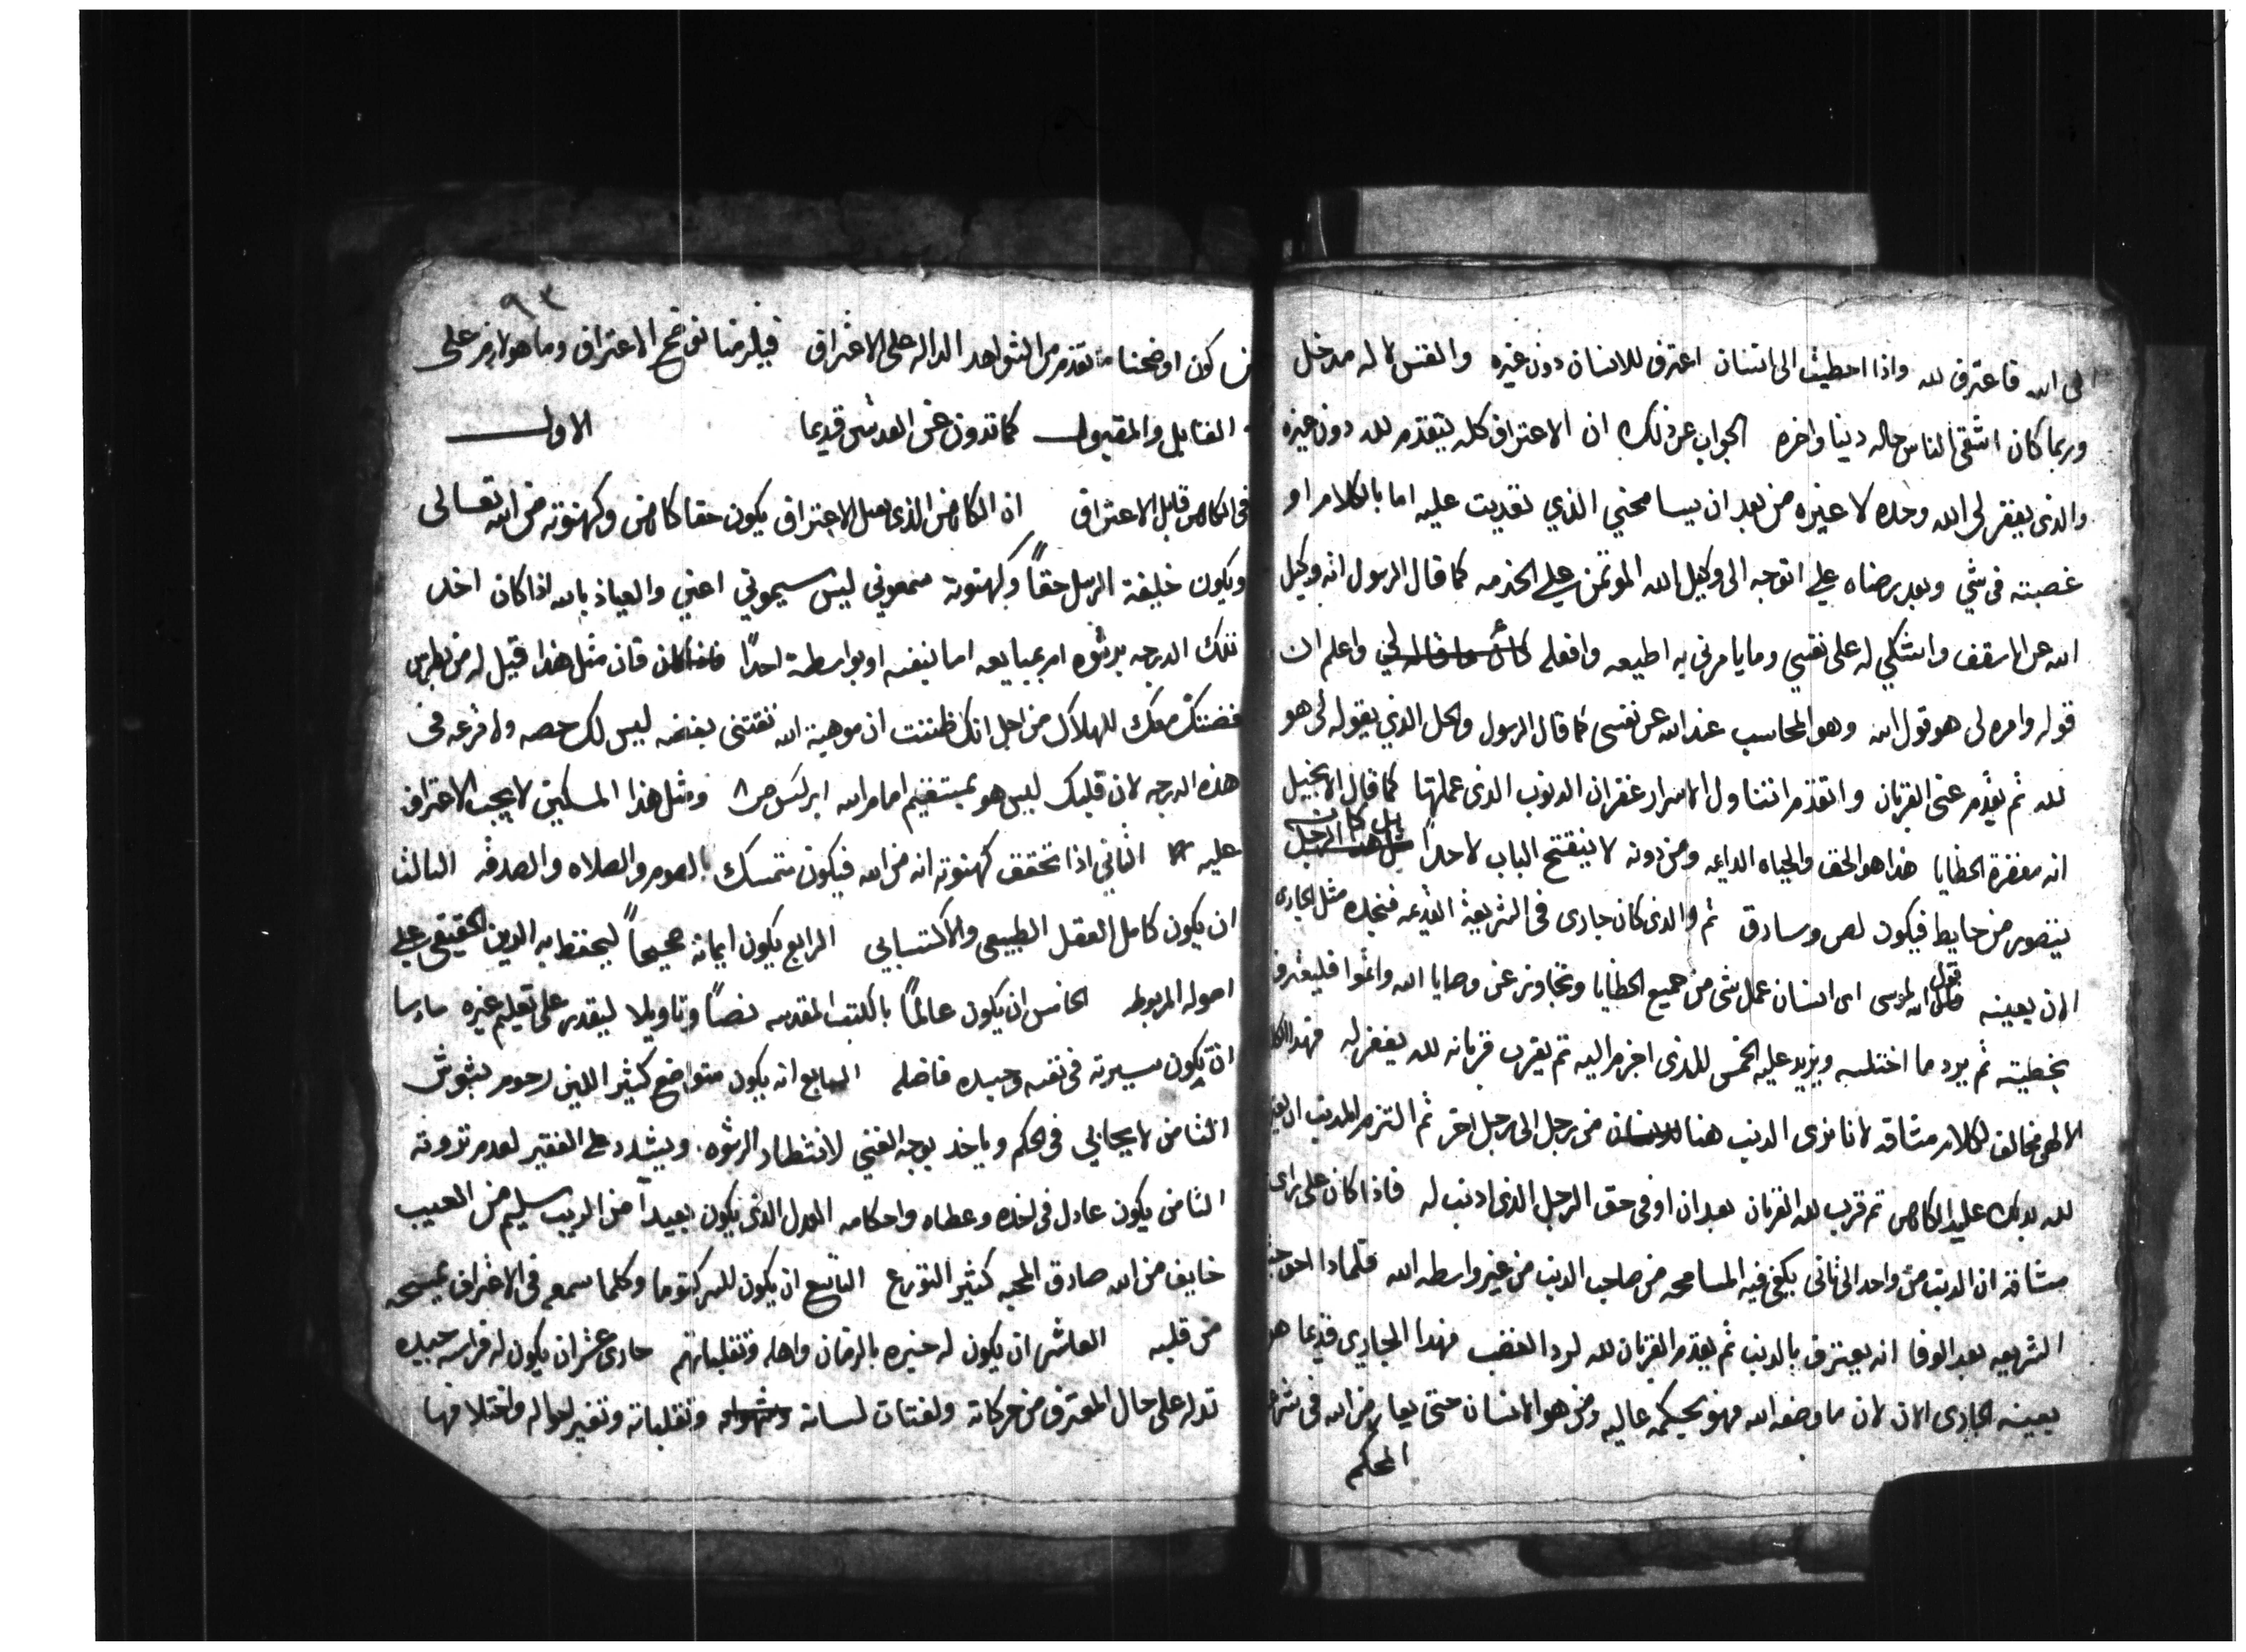 الى الله فاعترف لله واذا اخطيت الى انسان اعترف للانسان دون غيره والقس لا له مدخل
وربما كان اشقى الناس حاله دنيا واخره الجواب عن ذلك ان الاعتراف كله يتقدم لله دون غيره
والذى يغفر لى الله وحده لا غيره من بعد ان يسامحني الذي تعديت عليه اما بالكلام او
غصبته في شي وبعد رضاه علي اتوجه الى وكيل الله الموتمن علي الخدمه كما قال الرسول انه وكيل
الله عن الاسقف واشتكي له على نفسي وما يامرني به اطيعه وافعله واعلم ان
قوله وامره لى هو قول الله وهو المحاسب عند الله عن نفسى كما قال الرسول والحل الذي يقوله لى هو
لله ثم يقدم عنى القربان واتقدم اتناول الاسرار غفران الدنوب الذى عملتها كما قال الانجيل
انه مغفرة الخطايا هذا هو الحق والحياه الدايمه ومن دونه لا ينفتح الباب لاحداً بل كانه
يتصور من حايط فيكون لص وسارق ثم والذى كان جارى فى الشريعة القديمه فنجده مثل الجارى
الان بعينه قول الله لموسى اى انسان عمل شى من جميع الخطايا وتجاوز عن وصايا الله واثموا فليعترف
بخطيته ثم يرد ما اختلسه ويزيد عليه الخمس للذى اجرم اليه ثم يقرب قربانه لله يغفر له فهذا
الالهى مخالف لكلام مشاقه لانا نرى الدنب هنا من رجل الى رجل اخر ثم التزم المدنب ان
لله بدلك عليه الكاهن ثم قرب لله القربان بعد ان اوفى حق الرجل الذى ادنب له فاذا كان على راى
مشاقه ان الدنب من واحد الى ثانى يكفى فيه المسامحه من صاحب الدنب من غير واسطه الله فلمادا
الشريعه بعد الوفا انه يعترف بالدنب ثم يقدم القربان لله لرد الغضب فهذا الجاري قديما هو
بعينه الجارى الان لان ما وضعه الله فهو بحكمه عاليه ومن هو الانسان حتى من الله فى
المحكم
٩٣
من كون اوضحنا ما تقدم من الشواهد الداله على الاعتراف فيلزمنا نوضح الاعتراف وما هو لازم على
القابل والمقبول كما تدون عن القدس قديما الاول
فى الكاهن قابل الاعتراف ان الكاهن الذى يقبل الاعتراف يكون حقا كاهن وكهنوته من الله تعالى
ويكون خليفة الرسل حقاً وكهنوته سمعوني ليس سيموني اعني والعياذ بالله اذا كان اخد
تلك الدرجه برشوه ام بمبايعه اما بنفسه او بواسطة احداً فان مثل هذا قيل له من بطرس
فضتك معك للهلاك من اجل انك ظننت ان موهبة الله تقتنى بفضه ليس لك حصه ولا قرعه فى
هذه الدرجه لان قلبك ليس هو بمستقيم امام الله ابركسس ص ٨ ومثل هذا المسكين لا يجب الاعتراف
عليه الثاني اذا تحقق كهنوته انه من الله فيكون متمسك بالصوم والصلاه والصدقه الثالث
ان يكون كامل العقل الطبيعي والاكتسابي الرابع يكون ايمانه صحيحاً ليحفظ به الدين الحقيقي على
اصوله المربوطه الخامس ان يكون عالماً بالكتب المقدسه نصاً وتاويلا ليقدر على تعليم غيره سادسا
ان يكون سيرته فى نفسه وحسده فاضله السابع انه يكون متواضع كثير اللين رحوم بشوش
الثامن لا يحابي فى الحكم وياخد بوجه الغني لانتظار الرشوه ويشدد على الفقير لعدم ثروته
الثامن يكون عادل فى اخده وعطاه واحكامه العدل الذى يكون بعيداً من الريب سليم من العيب
خايف من الله صادق المحبه كثير التورع التاسع ان يكون للسر كتوما وكلما سمعه فى الاعتراف يمسحه
من قلبه العاشر ان يكون له خبره بالزمان واهله وتقلباتهم حادى عشر ان يكون له فراسه جيده
تدله على حال المعترف من حركاته ولفتات لسانه وتقلباته وتغير احواله واختلافها